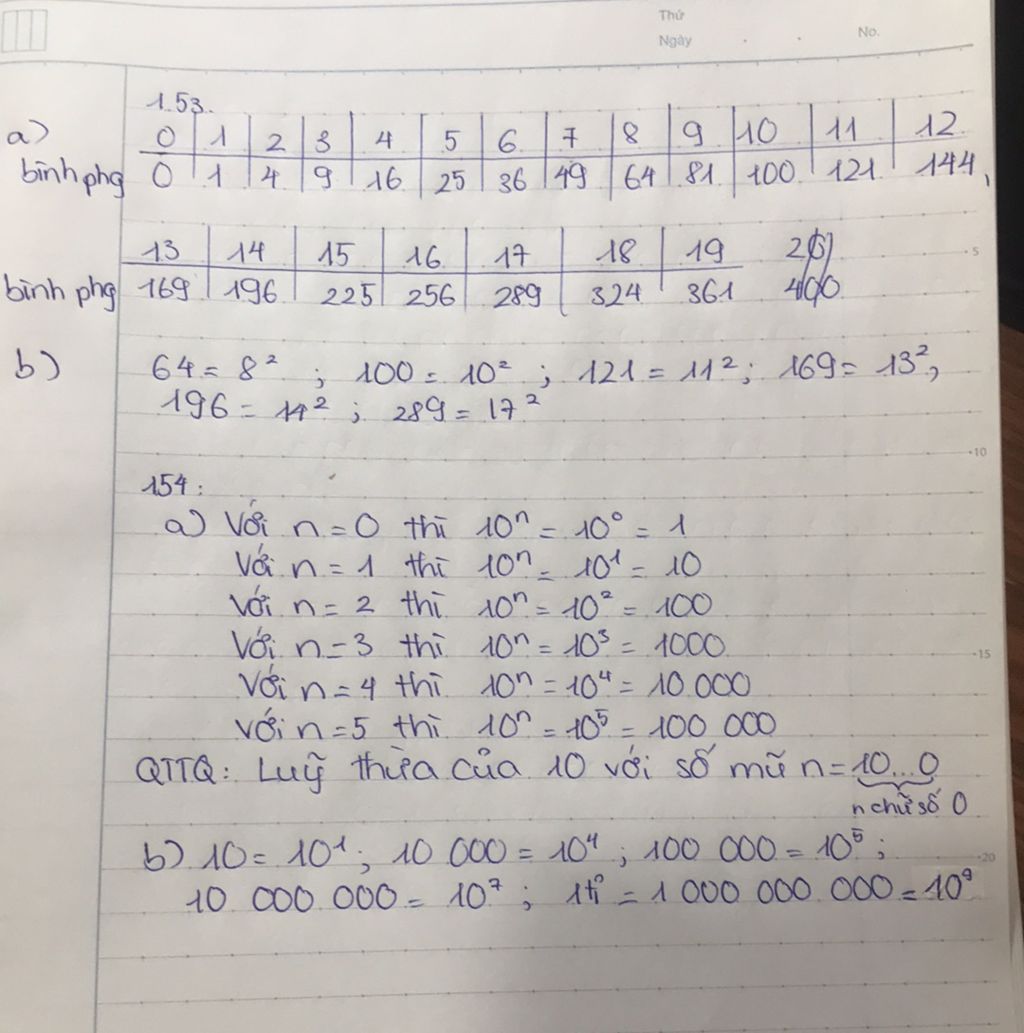 Thứ
Ngày . . No.
1.53.
a) 0 1 2 3 4 5 6 7 8 9 10 11 12
bình phg 0 1 4 9 16 25 36 49 64 81 100 121 144,
13 14 15 16 17 18 19
5
bình phg 169 196 225 256 289 324 361
b) 64 = 8² ; 100 = 10² ; 121 = 11² ; 169 = 13²,
196 = 14² ; 289 = 17²
10
154:
a) Với n = 0 thì 10ⁿ = 10⁰ = 1
Với n = 1 thì 10ⁿ = 10¹ = 10
Với n = 2 thì 10ⁿ = 10² = 100
Với n = 3 thì 10ⁿ = 10³ = 1000
15
Với n = 4 thì 10ⁿ = 10⁴ = 10 000
Với n = 5 thì 10ⁿ = 10⁵ = 100 000
QTTQ: Luỹ thừa của 10 với số mũ n = 10...0
n chữ số 0
b) 10 = 10¹ ; 10 000 = 10⁴ ; 100 000 = 10⁵ ;
20
10 000 000 = 10⁷ ; 1 tỉ = 1 000 000 000 = 10⁹